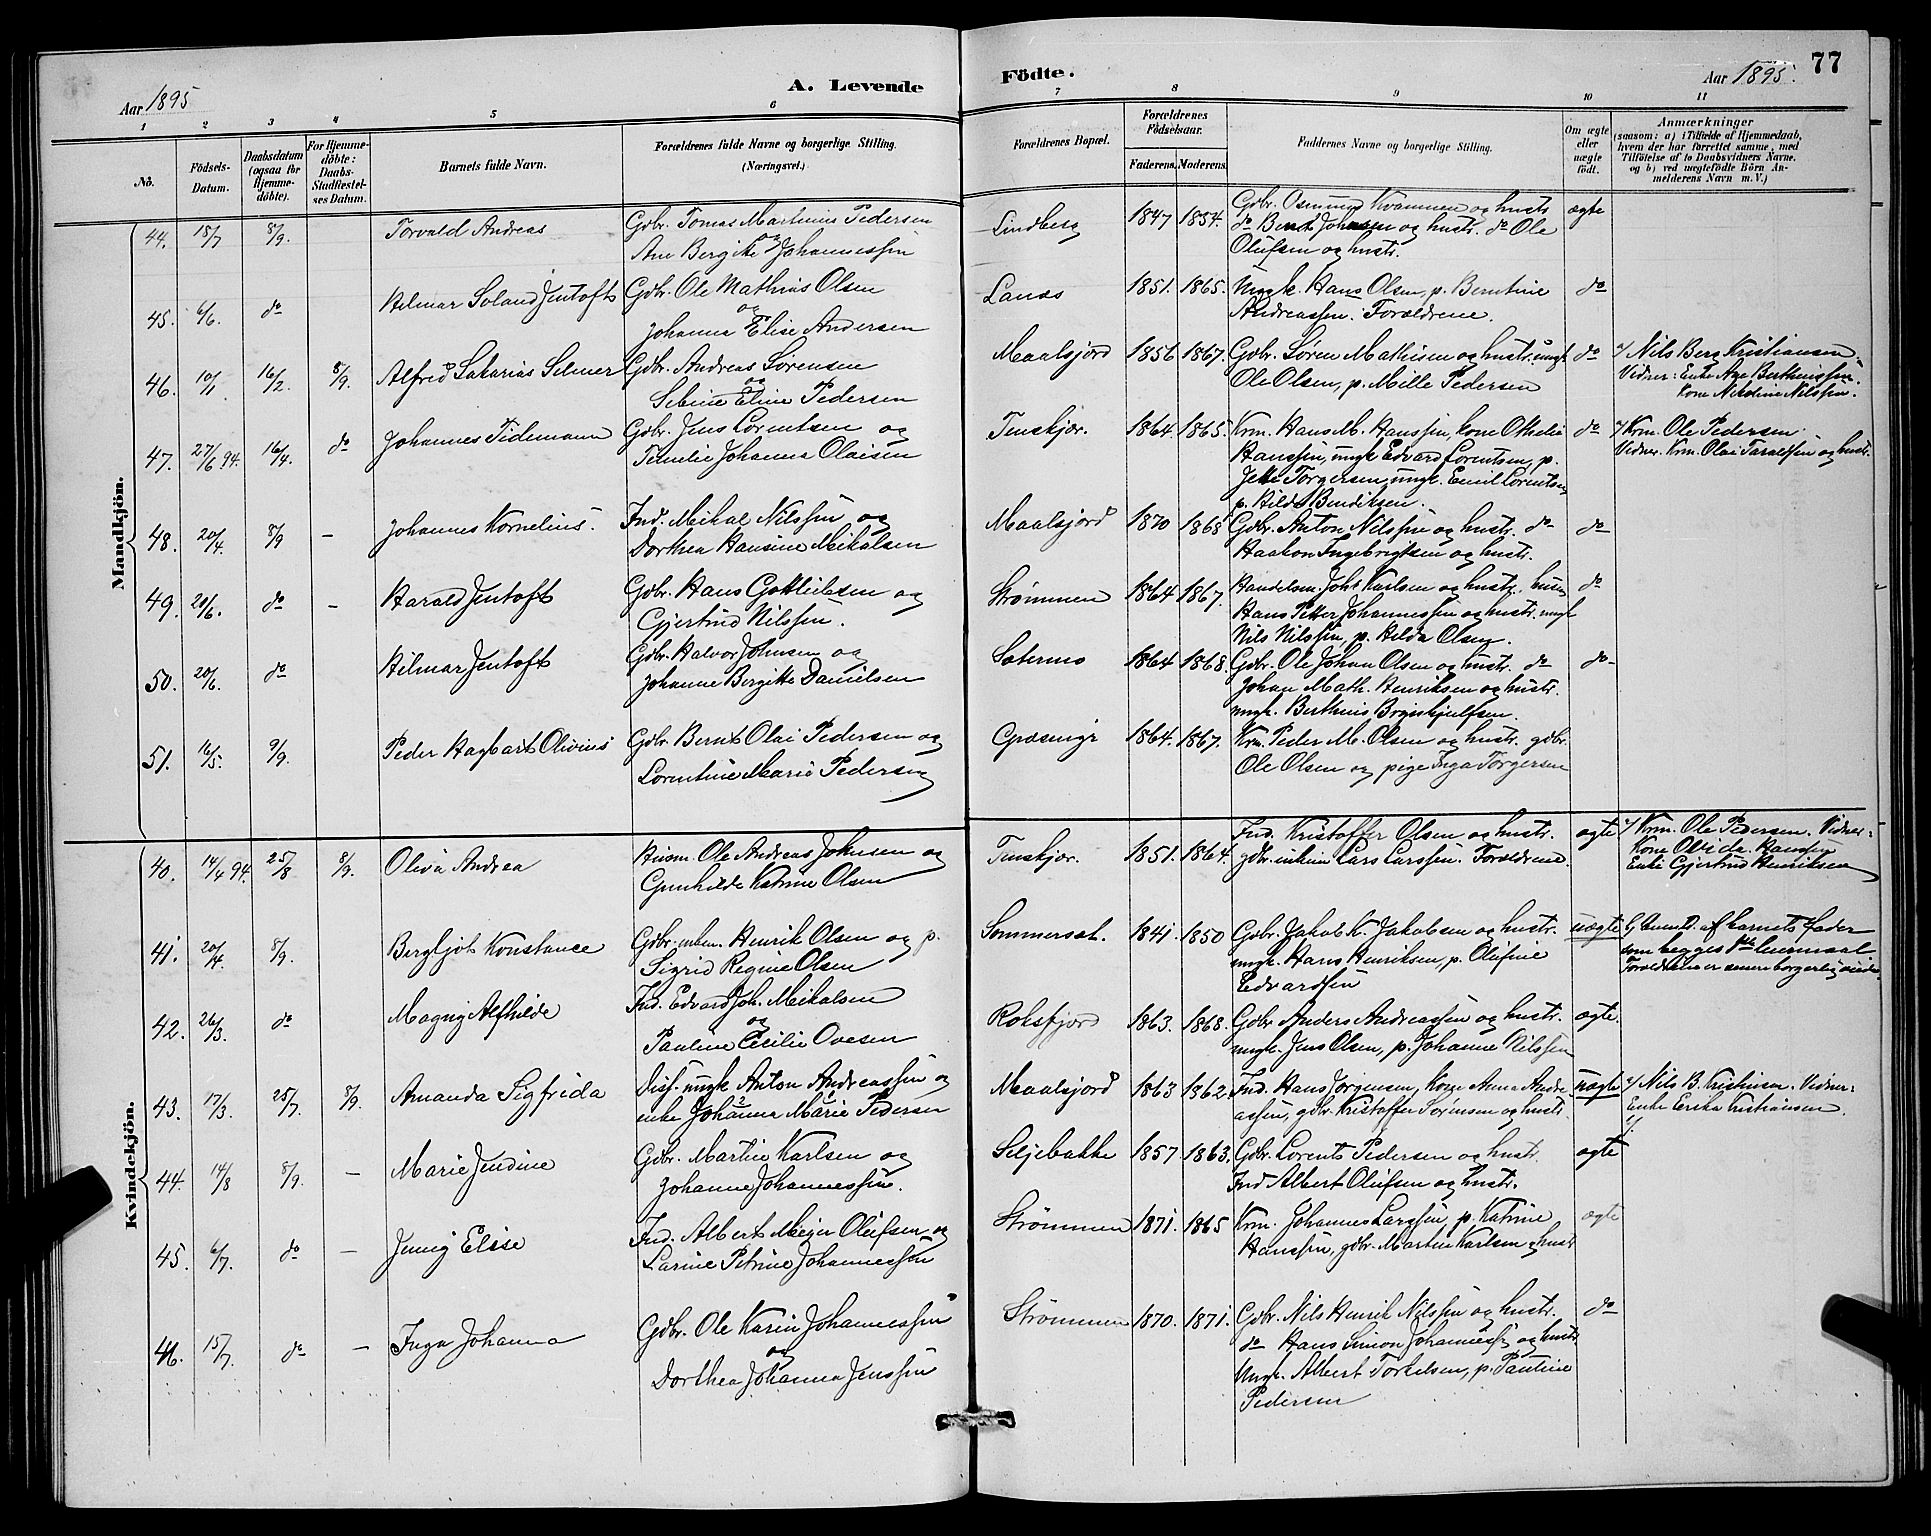 Aar 1895
A. Levende
Födte.
Aar 1895.
77
1 2 3 4 5 6 7 8 9 10 11
No.
Födsels-
Datum.
Daabsdatum
(ogsaa for
Hjemme-
döbte).
For Hjemme-
döbte:
Daabs-
Stadfæstel-
ses Datum.
Barnets fulde Navn.
Forældrenes fulde Navne og borgerlige Stilling.
(Næringsvei.)
Forældrenes Bopæl.
Forældrenes
Födselsaar.
Faderens. Moderens.
Faddernes Navne og borgerlige Stilling.
Om ægte
eller
uægte
födt.
Anmærkninger
(saasom: a) i Tilfælde af Hjemmedaab,
hvem der har forrettet samme, med
Tilföielse af to Daabsvidners Navne.
og b) ved uægtefödte Börn An-
melderens Navn m. V.)
Mandkjön.
44. 15/7 8/9. Torvald Andreas
Gdbr. Tomas Martinus Pedersen
og
Ane Bergitte Johannessen
Lindberg 1847 1854.
Gdbr. Osmund Kvammen og hustr.
do Bernt Johnsen og hustr. do Ole
Olufsen og hustr.
ægte
45. 6/6. do Hilmar Soland Jentoft
Gdbr. Ole Mathias Olsen
og
Johanna Elise Andersen
Lanæs 1851. 1865.
Ungk. Hans Olsen, p. Berntine
Andreassen. Forældrene.
do
46. 10/1 16/2 8/9. Alfred Sakarias Selmer
Gdbr. Andreas Sørensen
og
Sebine Eline Pedersen
Maalsjord 1856 1867.
Gdbr. Søren Mathisen og hustr. ungk.
Ole Olsen, p. Mille Pedersen
do
a/ Nils Berg Kristiansen.
Vidner: Enke Ane Berthinussen.
Kone Nikoline Nilssen.
47. 27/6 94. 16/4. do Johannes Tidemann
Gdbr. Jens Lorentsen og
Emilie Johanna Olaisen
Tenskjær. 1864. 1865.
Krm. Hans M. Hanssen, kone Othelie
Hanssen, ungk Edvard Lorentsen, p.
Jette Torgersen, ungk. Emil Lorentsen
p. Hilda Bendiksen.
do
a/ Krm. Ole Pedersen.
Vidner. Krm. Olai Taralfsen og hustr.
48. 20/4. 8/9 – Johannes Kornelius.
Ind. Mikal Nilssen og
Dorthea Hansine Mikalsen
Maalsjord 1870 1868
Gdbr. Anton Nilssen og hustr. do
Haakon Ingebrigtsen og hustr.
do
49. 20/6. do – Harald Jentoft
Gdbr. Hans Gottliebsen og
Gjertrud Nilssen.
Strømmen 1864 1867.
Handelsm. Joh. Karlsen og hustr. husm.
Hans Petter Johannessen og hustr. ungk
Nils Nilssen, p. Hilda Olsen.
do
50. 20/6. do Hilmar Jentoft
Gdbr. Halvor Johnsen og
Johanne Bergitte Danielsen
Sætermo 1864 1868.
Gdbr. Ole Johan Olsen og hustr. do
Johan Math. Henriksen og hustr.
ungk. Berthius
do
51. 16/5. 9/9. Peder Hagbart Olivius
Gdbr. Bernt Olai Pedersen og
Lorentine Marie Pedersen
1864. 1867.
Krm. Peder M. Olsen og hustr. gdbr.
Ole Olsen og pige Inga Torgersen
Kvindekjön.
40. 14/4 94. 25/8 8/9. Oliva Andrea
Husm. Ole Andreas Johnsen og
Gunhilde Katrine Olsen
Tenskjær. 1851. 1864.
Ind. Kristoffer Olsen og hustr.
gdbr. enkem Lars Larssen. Forældrene.
ægte
a/ Krm. Ole Pedersen. Vidner:
Kone Hanssen
Enke Gjertrud Henriksen
41. 20/4 8/9. Bergljot Konstance
Gdbr. enkem. Henrik Olsen og p.
Sigrid Regine Olsen
Sommersæt. 1841. 1850
Gdbr. Jakob K. Jakobsen og hustr.
ungk. Hans Henriksen, p. Olufine
Edvardsen
uægte
b/ Anmeldt af barnets fader
som begges 1ste leiermaal
Forældrene er senere borgerlig viede.
42. 26/3. do Magny Alfhilde
Ind. Edvard Joh. Mikalsen
og
Pauline Cecilie Ovesen
Roksfjord 1863. 1868.
Gdbr Anders Andreassen og hustr.
ungk. Jens Olsen, p. Johanne Nilssen
ægte.
43. 17/3. 25/7. 8/9. Amanda Sigfrida
Diss. ungk Anton Andreassen og
enke Johanna Marie Pedersen
Maalsjord 1863 1862.
Ind. Hans Jørgensen, Kone Anna Andre-
assen, gdbr. Kristoffer Sørensen og hustr.
uægte
a/ Nils B. Kristiansen. Vidner:
Enke Erika Kristiansen.
b/.
44. 14/8 8/9. – Marie Jendine
Gdbr. Martin Karlsen og
Johanne Johannessen.
Seljebakke 1857 1863.
Gdbr. Lorents Pedersen og hustr.
Ind Albert Olufsen og hustr.
ægte
45. 6/7. do – Jenny Elise
Ind. Albert Meier Olufsen og
Larine Petrine Johannessen
Strømmen 1871. 1865
Krm. Johannes Larssen, p. Katrine
Hanssen, gdbr. Martin Karlsen o hust
ægte
46. 15/7. do – Inga Johanna
Gdbr. Ole Karin Johannessen
og
Dorthea Johanna Jenssen
Strømmen 1870. 1871.
Gdbr. Nils Henrik Nilssen og hustr.
do Hans Simon Johannessen og hustr.
Ungk. Albert Torkelsen, p. Pauline
Pedersen
do